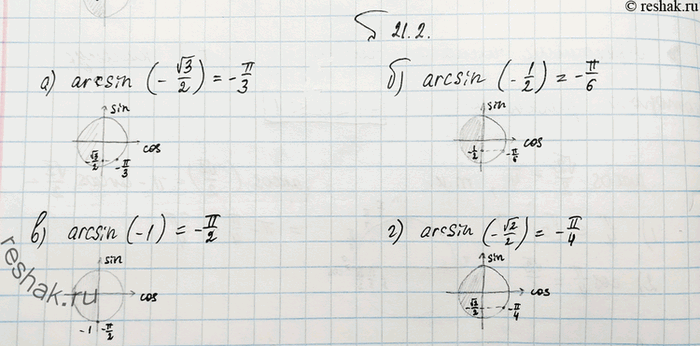 © reshak.ru
21.2.
а) arcsin (-√3/2) = -π/3
sin
cos
-√3/2
-π/3
б) arcsin (-1/2) = -π/6
sin
cos
-1/2
-π/6
в) arcsin (-1) = -π/2
sin
cos
-1
-π/2
г) arcsin (-√2/2) = -π/4
sin
cos
-√2/2
-π/4
reshak.ru